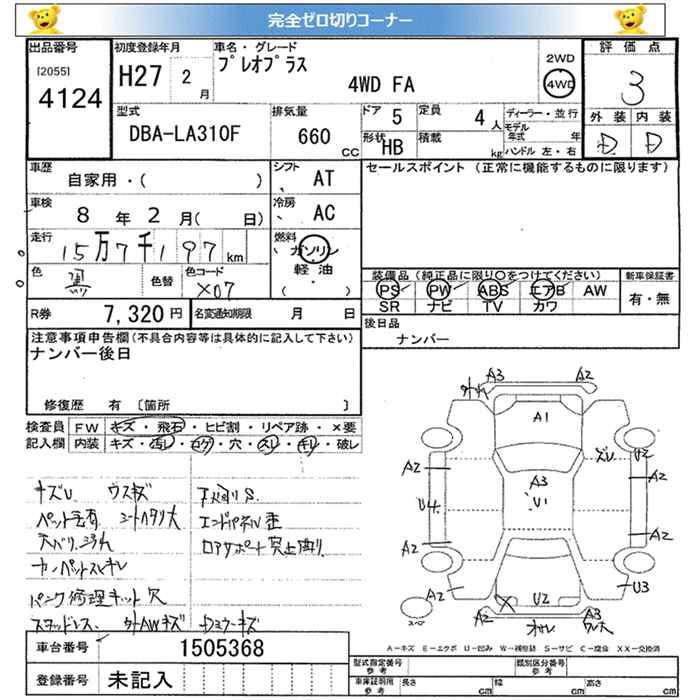 完全ゼロ切りコーナー
出品番号
[2055]
4124
初度登録年月
H27 2月
車名・グレード
プレオプラス
4WD FA
2WD
4WD
評価点
3
型式
DBA-LA310F
排気量
660 CC
ドア 5
定員 4人
形状 HB
積載 kg
ディーラー・並行
モデル年式 年
ハンドル 左・右
外装 内装
D D
車歴
自家用・( )
シフト
AT
セールスポイント (正常に機能するものに限ります)
車検
8年2月( 日)
冷房
AC
走行
15万7千197km
燃料
ガソリン
軽油
( )
色
黒
色替
色コード
X07
装備品(純正品に限り〇をつけてください)
PS PW ABS エアB AW
SR ナビ TV カワ
新車保証書
有・無
R券 7,320円
名変通知期限 月 日
後日品
ナンバー
注意事項申告欄(不具合内容等は具体的に記入して下さい)
ナンバー後日
修復歴 有 〔箇所 〕
検査員記入欄
FW キズ・飛石・ヒビ割・リペア跡・×要
内装 キズ・汚レ・コゲ・穴・スレ・キレ・破レ
キズU ウスキズ
シートヘタリ大
パンク修理キット欠
スタッドレス 外AWキズ
エンドパネル歪
A3 A2
A2
A1
A3
U1
A2
U2
A2
U4
A2
A2
A2
U3
U2
A2
A3
スペア
A-キズ E-エクボ U-凹み W-補修跡 S-サビ C-腐食 XX-交換済
車台番号 1505368
登録番号 未記入
型式指定番号 参考
類別区分番号 参考
車庫証明用 参考
長さ cm
幅 cm
高さ cm